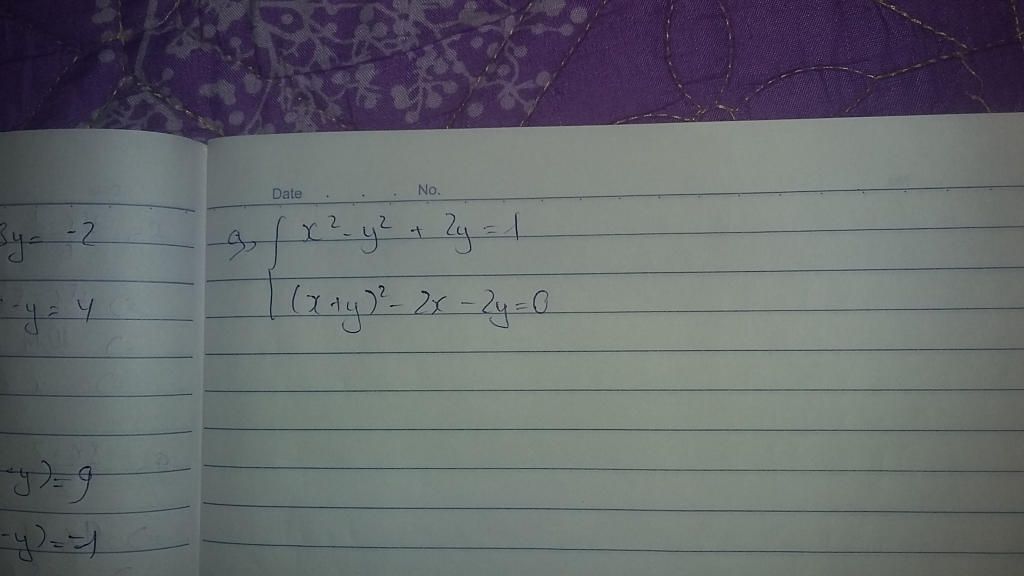 3y = -2
-y = 4
-y) = 9
-y) = -1
Date . . . No.
g, { x² - y² + 2y = 1
(x+y)² - 2x - 2y = 0